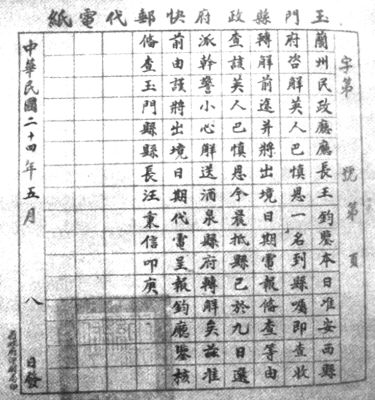 玉門縣政府快郵代電紙
字第　號第　頁
蘭州民政廳廳長王鈞鑒本日准安西縣
府咨解英人巴慎恩一名到縣囑即查收
轉解前途并將出境日期電報俻查等由
查該英人巴慎恩今晨抵縣已於九日選
派幹警小心解送酒泉縣府轉解矣茲准
前由謹將出境日期代電呈報鈞廳鑒核
俻查玉門縣縣長汪秉信叩庚
中華民國二十四年五月　八　日發